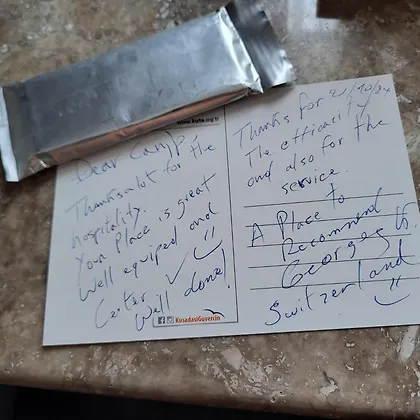 www.kuto.org.tr
Dear Camp,
Thanks a lot for the
hospitality.
Your Place is great
Well equiped and
Center ✓
Well done!
KusadasiGuvercin
Thanks for
The efficacity
and also for the
service.
A Place to
Recommend
Georges
Switzerland